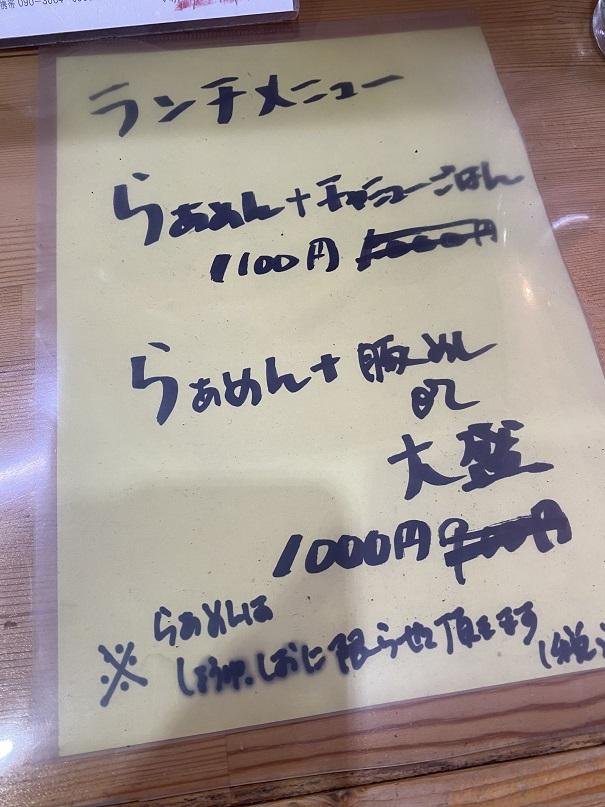 携帯 090-3004
ランチメニュー
らぁめん+チャーシューごはん
1100円
らぁめん+豚めし
or
大盛
1000円
※ らぁめんは
しょうゆ、しおに限らせて頂きます
(税